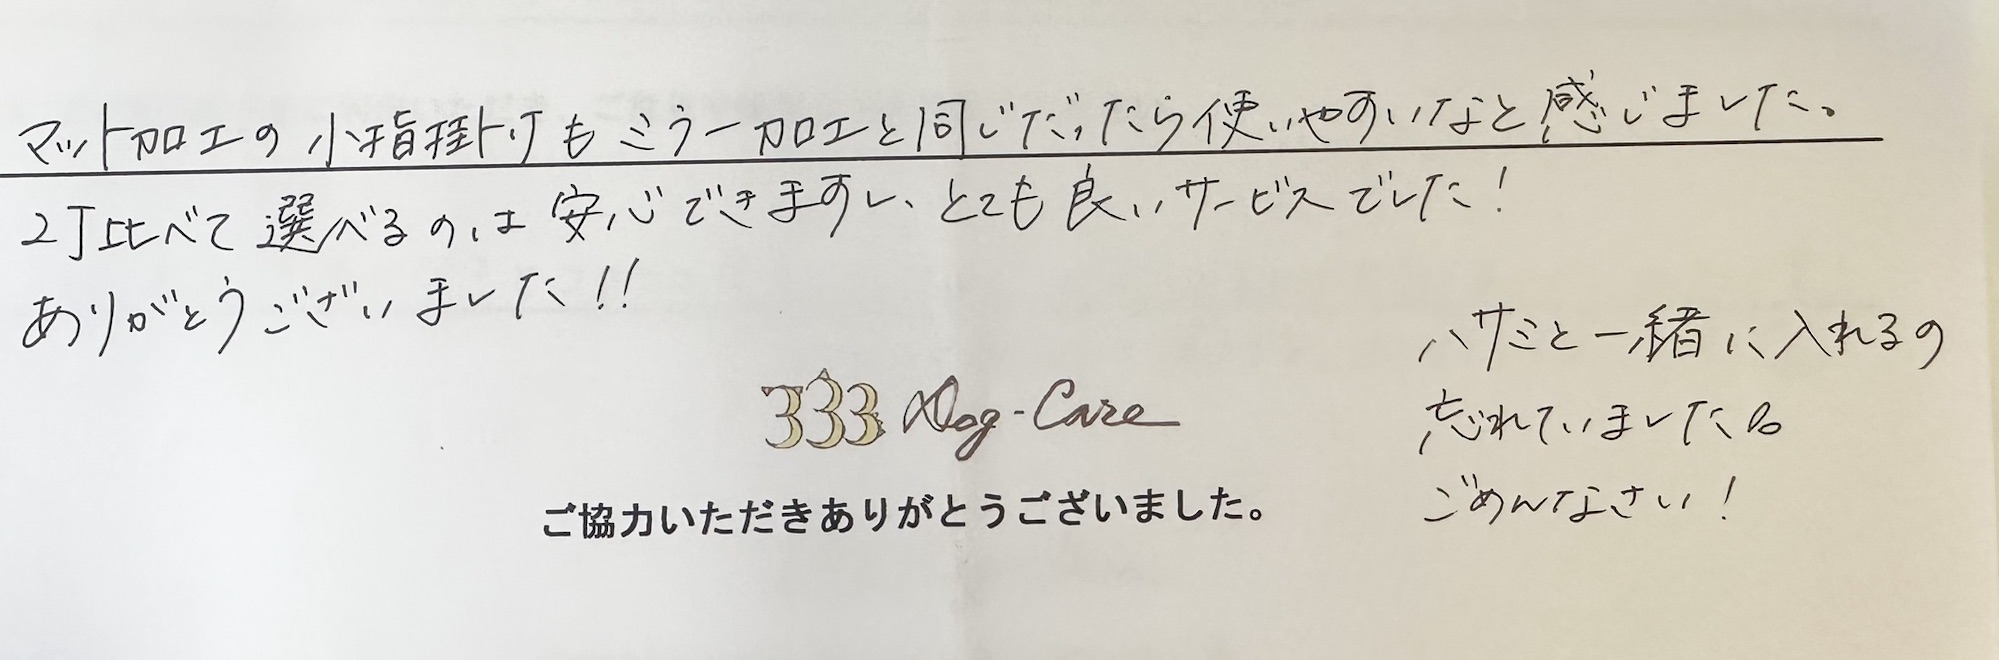 マット加工の小指掛けもミラー加工と同じだったら使いやすいなと感じました。
2丁比べて選べるのは安心できますし、とても良いサービスでした!
ありがとうございました!!
ハサミと一緒に入れるの
忘れていました。
ごめんなさい!
333 Dog-Care
ご協力いただきありがとうございました。